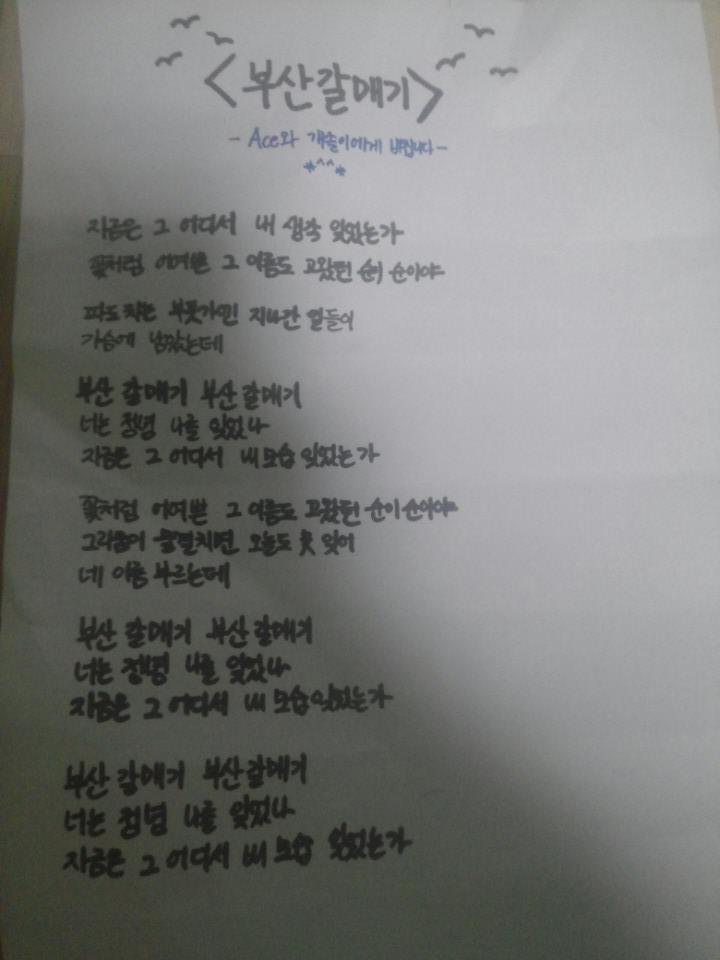 <부산갈매기>
- Ace와 개솔이에게 바칩니다 -
*^^*
지금은 그 어디서 내 생각 잊었는가
꽃처럼 어여쁜 그 이름도 고왔던 순이 순이야
파도치는 부둣가에 지나간 일들이
가슴에 남았는데
부산 갈매기 부산 갈매기
너는 정녕 나를 잊었나
지금은 그 어디서 내 모습 잊었는가
꽃처럼 어여쁜 그 이름도 고왔던 순이 순이야
그리움이 물결치면 오늘도 못 잊어
네 이름 부르는데
부산 갈매기 부산 갈매기
너는 정녕 나를 잊었나
지금은 그 어디서 내 모습 잊었는가
부산 갈매기 부산 갈매기
너는 정녕 나를 잊었나
지금은 그 어디서 내 모습 잊었는가